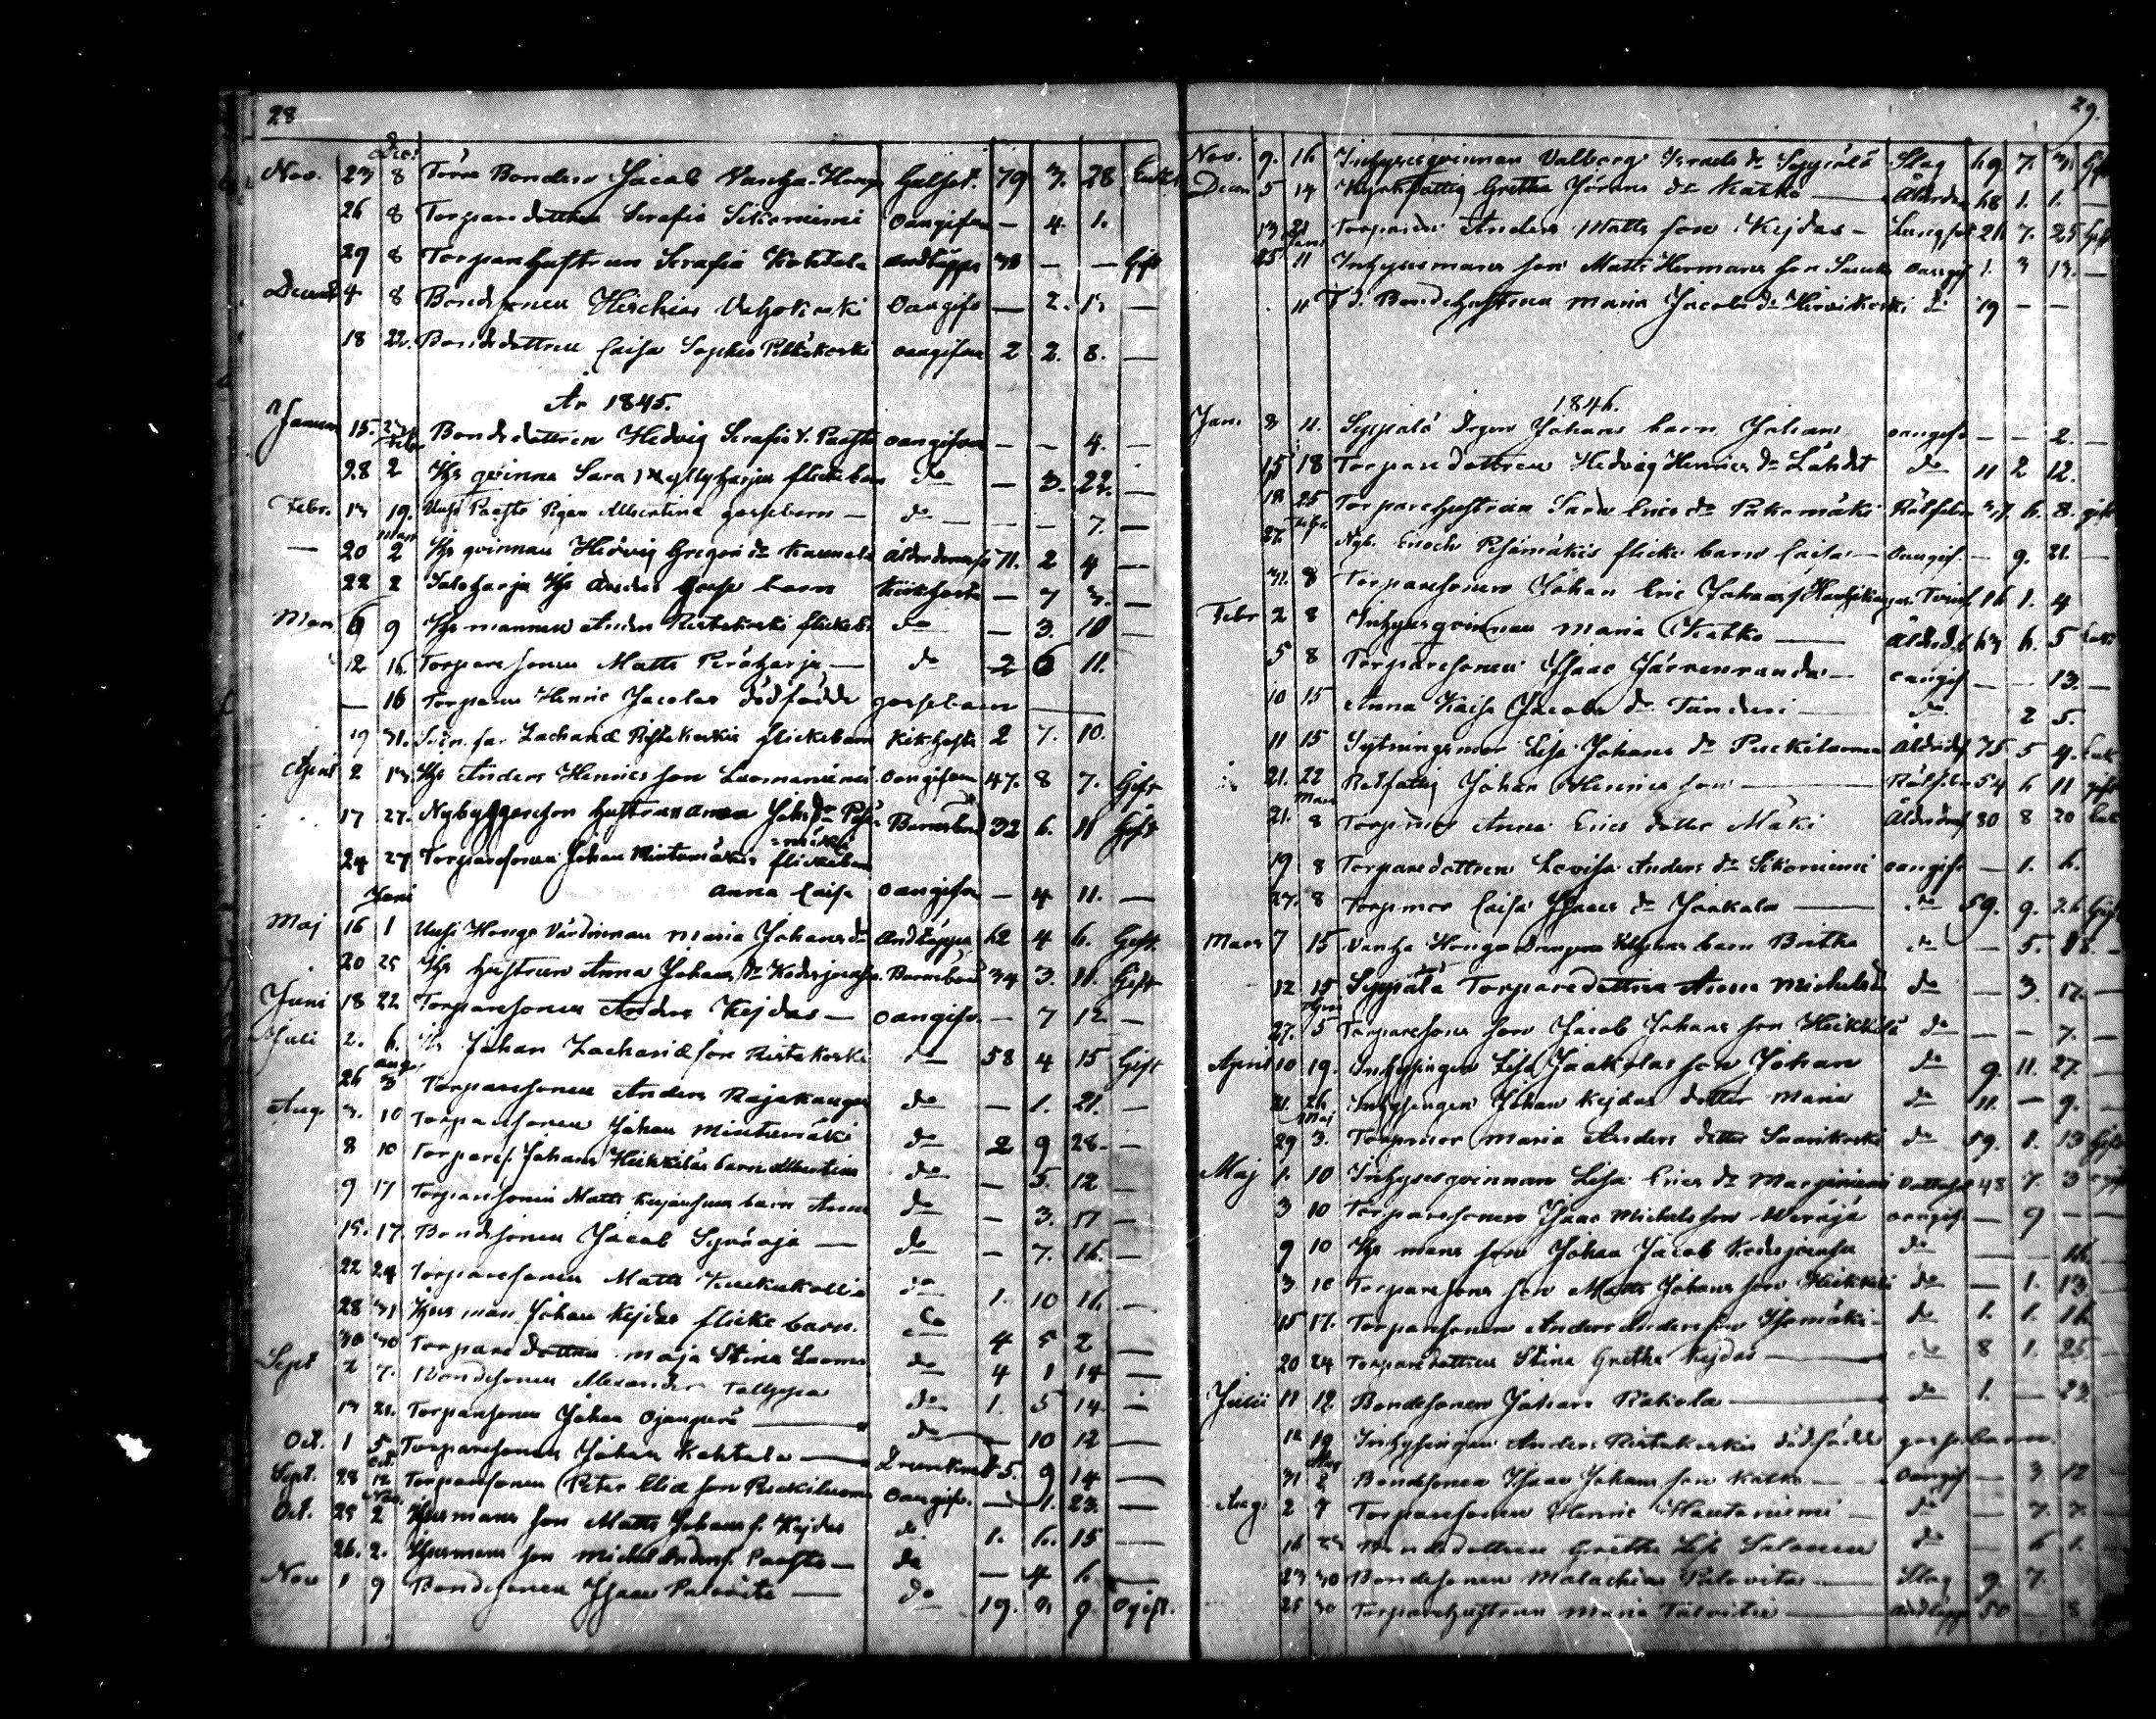 28
Decr
Nov. 23 8 Bonden Jacob Vanha-Honga Halsf. 79 3. 28 Enkl.
26 8 Torparedottren Serafia Sikaniemi Oangifven — 4. 1.
29 8 Torparehustrun Serafia Kohtala Andtäppa 38 — — Gift
Decemb 4 8 Bondesonen Oangifv — 2. 13 —
18 22. Bondedottren Caisa Sophia Pitkäkoski oangifven 2 2. 8. —
År 1845.
Januar 15. 23 Bondedottren Hedvig Serafia V. Paasto oangifven — — 4. —
Febr
28 2 Hs qvinna Sara Myllyharju flickebarn do — 3. 22. —
Febr. 13 19. Uusi Paasto Pigan Albertina gossebarn — do — — — 7. —
Mars
— 20 2 Hs qvinnan Hedvig Gregori dr Kaunela Ålderdomssv 71. 2 4 —
22 2 Saloharju Hs Anders gosse barn Kikhosta — 7 3. —
Mars 6 9 Hs mannen Anders Ristakoski flickeb. do — 3. 10 —
12 16 Torparesonen Matts Peräharju — do 2 6 11.
— 16 Torparen Henric Jacolas dödfödde gossebarn
19 31. Zachariæ Ristakoskis flickebarn Kikhosta 2 7. 10.
April 2 13. Hs Anders Henricsson Luomaniemi Oangifven 47. 8 7. Gift
17 27. Nybyggareson hustrun Anna Joh. dr Pesä-
=mäki Barnsbörd 32 6. 11 Gift
24 27 Torparesonen Johan Rintamäkis flickebarn
Anna Caisa oangifven — 4 11. —
Juni
Maj 16 1 Uusi Honga Värdinnan Maria Johans dr Andtäppa 62 4 6. Gift.
20 25 Hs hustrun Anna Johans dr Barnsbörd 34 3. 11. Gift
Juni 18 22 Torparesonen Anders Kejdas — oangifv. — 7 12 —
Juli 2. 6. Hs Johan Zachariæson Ristakoski do 58 4 15 Gift
aug
26 3 Torparesonen Anders Rajakangas do — 1. 21. —
Aug. 3. 10 Torparesonen Johan Mintumäki do 2 9 28. —
8 10 Torpares. Johans Heikkiläs barn Albertina do — 5. 12 —
9 17 Torparesonen Matts barn Anna do — 3. 17 —
15. 17. Bondesonen Jacob Syväoja — do — 7. 16. —
22 24 Torparesonen Matts Kuckukallio do 1. 10 11. —
28 31 Husman Johan Kejdas flicke barn. do 4 5 2 —
30 30 Torparedottren Maja Stina Luoma do 4 1 14 —
Sept 2 7. Bondesonen Alexander do 1. 5 14. —
13 21. Torparesonen Johan Ojanperä — do — 10 12 —
Oct. 1 5 Torparesonen Johan Kohtala — Drunknat 5. 9 14 —
Oct.
Sept. 28 12 Torparesonen Peter Eliæ son Puckiluoma Oangifv. — 1. 23. —
Nov.
Oct. 25 2 Husmans son Matts Johans s. Kejdas do 1. 6. 15 —
26. 2. Husmans son Michel Anders s. Paasto — do — 4 6. —
Nov 1 9 Bondesonen Isaac Palovita — do 19. 9. ogift.
29.
Nov. 9. 16 Inhysesqvinnan Valborg Israels dr Seppälä Slag 69 7. 3. Gift
Decem 5 14 Kyrkfattig Gretha Jörans dr Katko — Åldrdom 68 1. 1. —
13 21 Torparen Anders Matts son Kejdas — Lungsot 26 7. 25 Gift
Janr
25 11 Inhysesmans son Matts Hermans son oangif 1. 3 13. —
11 F. d. Bondehustrun Maria Jacobs dr Hirvikoski do 79 — —
1846.
Jan. 8 11. Seppälä Drgen Johans barn Johan oangifv — — 2. —
15 18 Torparedottren Hedvig Henrics dr Lähdet do 11 2 12.
18 25 Torparehustrun Sara Erics dr Pakomäki Rötfeber 37 6. 8. gift
Febr
27. Nyb. Enoch Pesämäkis flicke barn Caisa — Oangif. — 9. 21. —
31. 8 Torparesonen Johan Eric Johans s. Harjukangas Tvinsj. 16 1. 4
Febr 2 8 Inhysesqvinnan Maria Katko — Åldrdom 63 6. 5 Enk
5 8 Torparesonen Isaac Järvenranda — oangif — — 13. —
10 15 Anna Kaisa Jacobs dr Tunduri — do 2 5.
11 15 Sytningsmor Lisa Johans dr Puckiluoma Åldrdom 75. 5 4. Enk
21. 22 Rotfattig Johan Henrics son — Rötfeber 54 6 11 gift
Mars
21. 8 Torpmor Anna Erics dotter Mäki Åldrdom 80 8 20 Enk
19 8 Torparedottren Lovisa Anders dr Sikaniemi oangifv — 1. 6.
27. 8 Torpmor Caisa Isaacs dr Jaakola — do 59. 9. 26 Gift
Mars 7 15 Vanha Honga Drengens barn Britha do — 5. 18. —
12 15 Seppälä Torparedottren Anna Michelsdr do — 3. 17. —
April
27. 5 Torparesons son Jacob Johans son Heikkilä do — — 7. —
April 10 19. Inhysingen Lisa Jaakolas son Johan do 9. 11. 27. —
21. 26 Inhysingen Johan Kejdas dotter Maria do 11. — 9. —
Maj
29 3. Torpmor Maria Anders dotter Saarikoski do 59. 1. 13 Gift
Maj 1. 10 Inhysesqvinnan Lisa Erics dr Marjaniemi Vattusot 48 7. 3 ogift
3 10 Torparesonen Isaac Michels son oangif — 9 — —
9 10 Hs mans son Johan Jacob do — — 16. —
3. 10 Torparesons son Matts Johans son Heikkilä do — 1. 13.
15 17. Torparesonen Anders Anders son Isomäki — do 1. 1. 16.
20 24 Torparedottren Stina Gretha Kejdas — do 8 1. 25. —
Julii 11 12 Bondesonen Johan Rakola — do 1. — 23.
12 19 Inhysingen Anders Ristakoskis dödfödde gossebarn.
Aug
31 2 Bondesonen Isaac Johans son Katko — Oangif — 3 12 —
Aug. 2 9 Torparesonen Henric Hautaniemi — do — 7. 7. —
16 23 Bondedottren Gretha Lisa Salonen do — 6 1. —
23 30 Bondesonen Malachias Palovita — Slag 9. 7.
25 30 Torparehustrun Maria Talvitie — Andtäpp 50 — 8